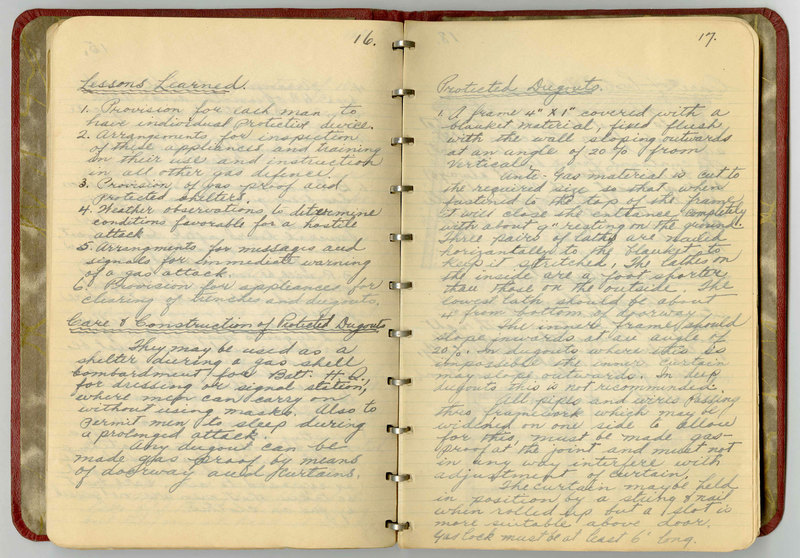 16.
Lessons Learned.
1. Provision for each man to
have individual protective device.
2. Arrangements for inspection
of these appliances and training
in their use and instruction
in all other gas defence.
3. Provision of Gas proof and
protected shelters.
4. Weather observations to determine
conditions favorable for a hostile
attack
5. Arrangments for messages and
signals for immediate warning
of a gas attack.
6. Provision for appliances for
clearing of trenches and dugouts.
Care & Construction of Protected Dugouts
They may be used as a
shelter during a gas shell
bombardment for Batt. H.Q.,
for dressing or signal station,
where men can carry on
without using masks. Also to
permit men to sleep during
a prolonged attack.
Any dugout can be
made gas proof by means
of doorway and curtains.
17.
Protected Dugouts.
1. A frame 4" X 1" covered with a
blanket material, fixed flush
with the wall sloping outwards
at an angle of 20% from
Vertical.
Anti-Gas material is cut to
the required size so that when
fastened to the top of the frame
it will close the entrance completely
with about 9" resting on the ground.
Three pairs of laths are nailed
horizontally to the blanket to
keep it stretched, the lathes on
the inside are a foot shorter
than those on the outside. The
lowest lath should be about
4" from bottom of doorway.
The inner frame should
slope inwards at an angle of
20%. In dugouts where this is
impossible the inner curtain
may slope outwards. In deep
dugouts this is not recommended.
All pipes and wires passing
thru framework which may be
widened on one side to allow
for this, must be made gas-
proof at the joint and must not
in any way interfere with
adjustment of curtain.
The curtain may be held
in position by a string & nail
when rolled up but a slot is
more suitable above door.
Gas lock must be at least 6' long.